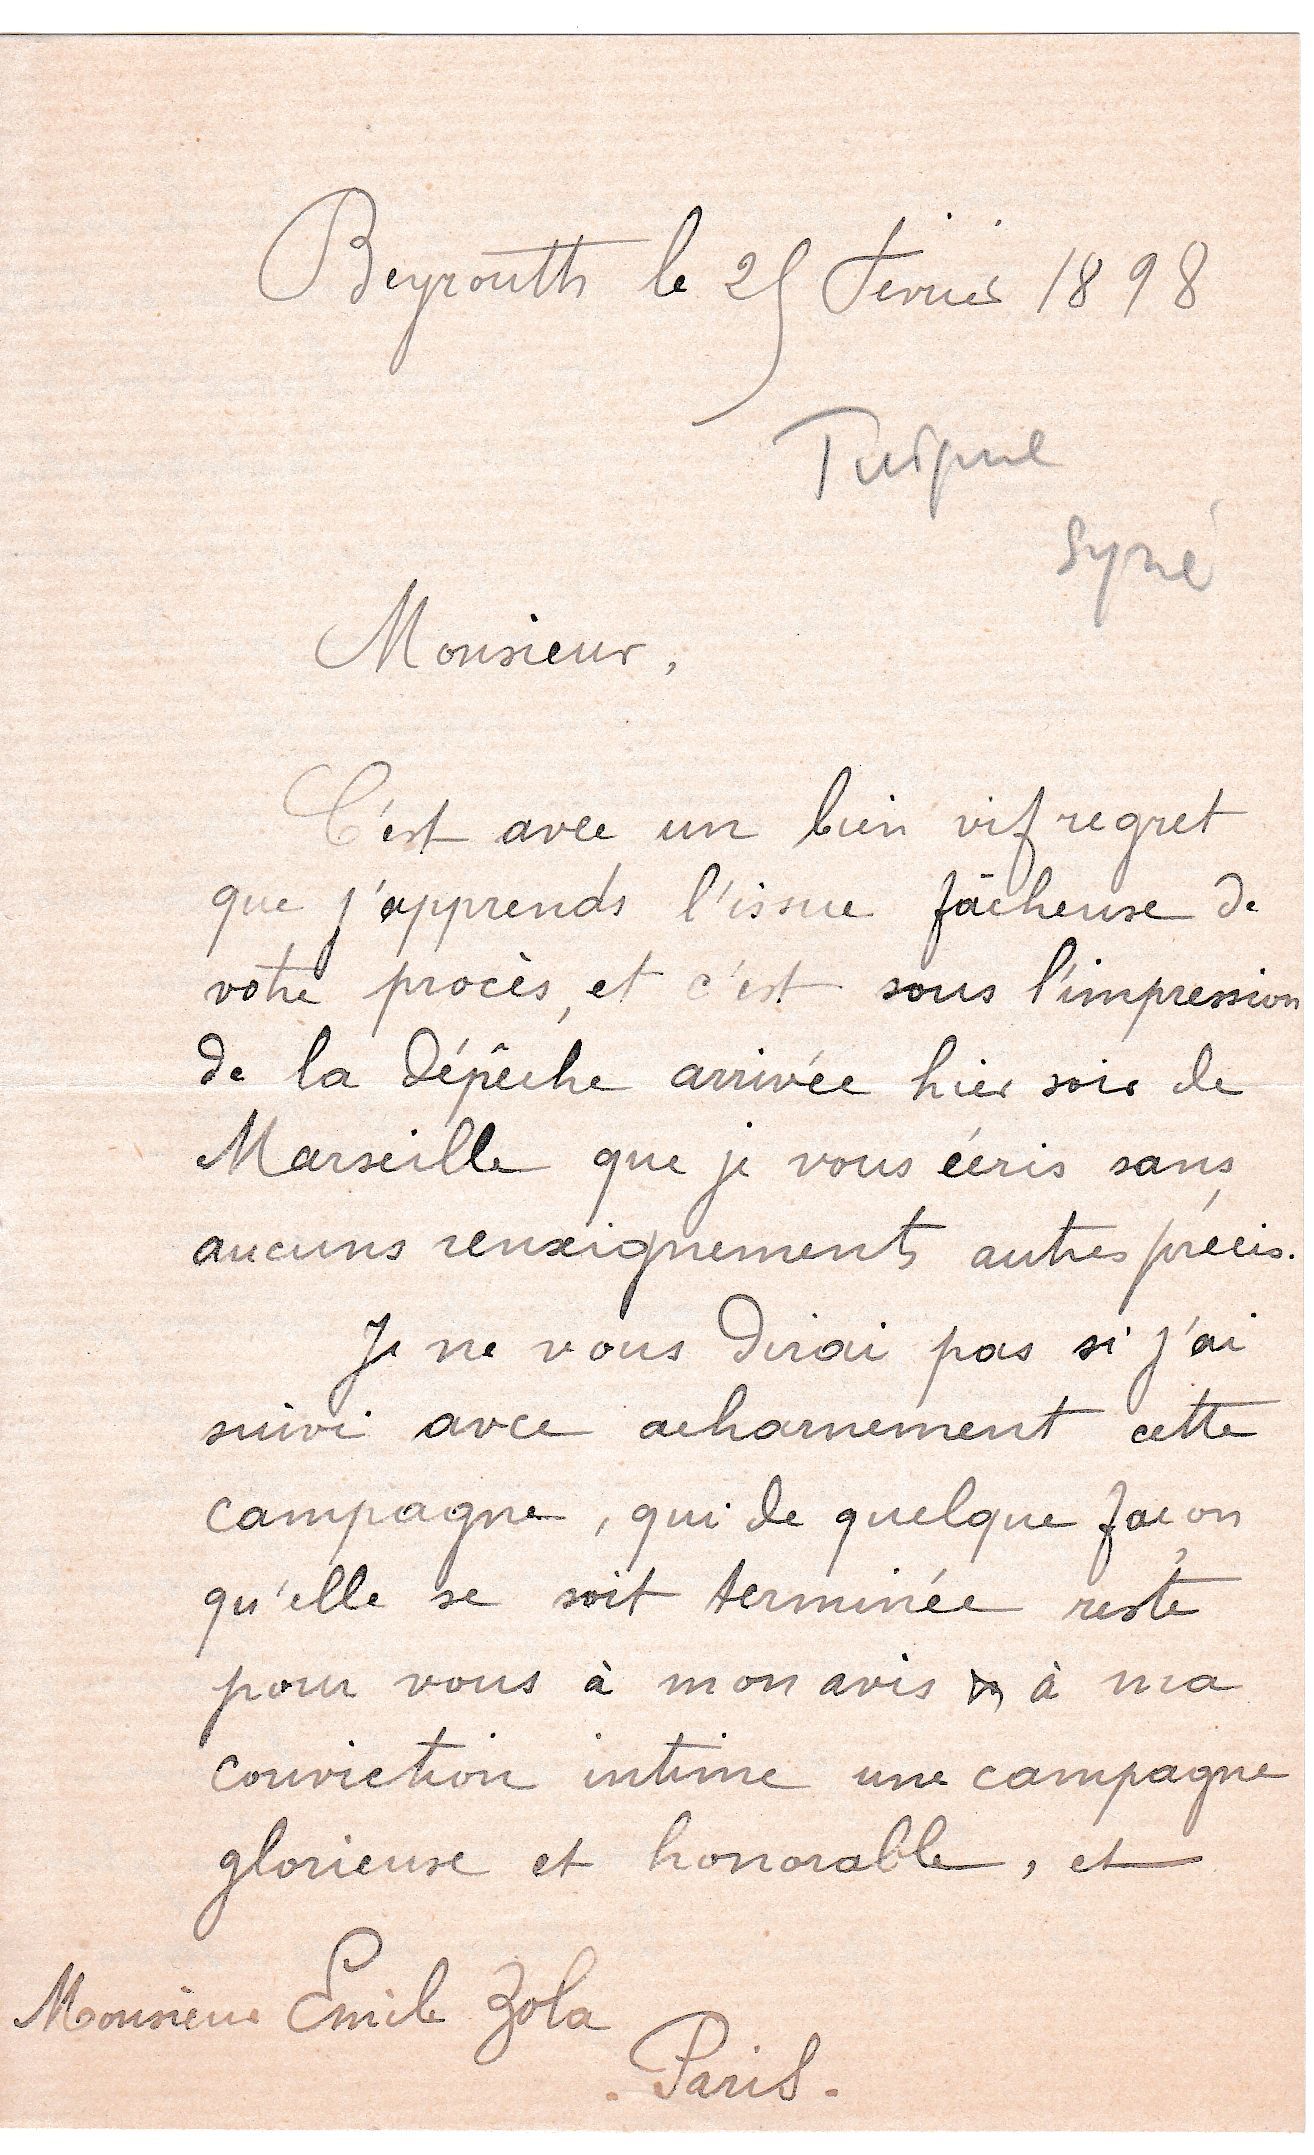 Beyrouth le 25 Février 1898
Turquie
Syrie
Monsieur,
C'est avec un bien vif regret
que j'apprends l'issue fâcheuse de
votre procès, et c'est sous l'impression
de la dépêche arrivée hier soir de
Marseille que je vous écris sans
aucuns renseignements autres précis.
Je ne vous dirai pas si j'ai
suivi avec acharnement cette
campagne, qui de quelque façon
qu'elle se soit terminée reste
pour vous à mon avis à ma
conviction intime une campagne
glorieuse et honorable, et
Monsieur Emile Zola
. Paris.